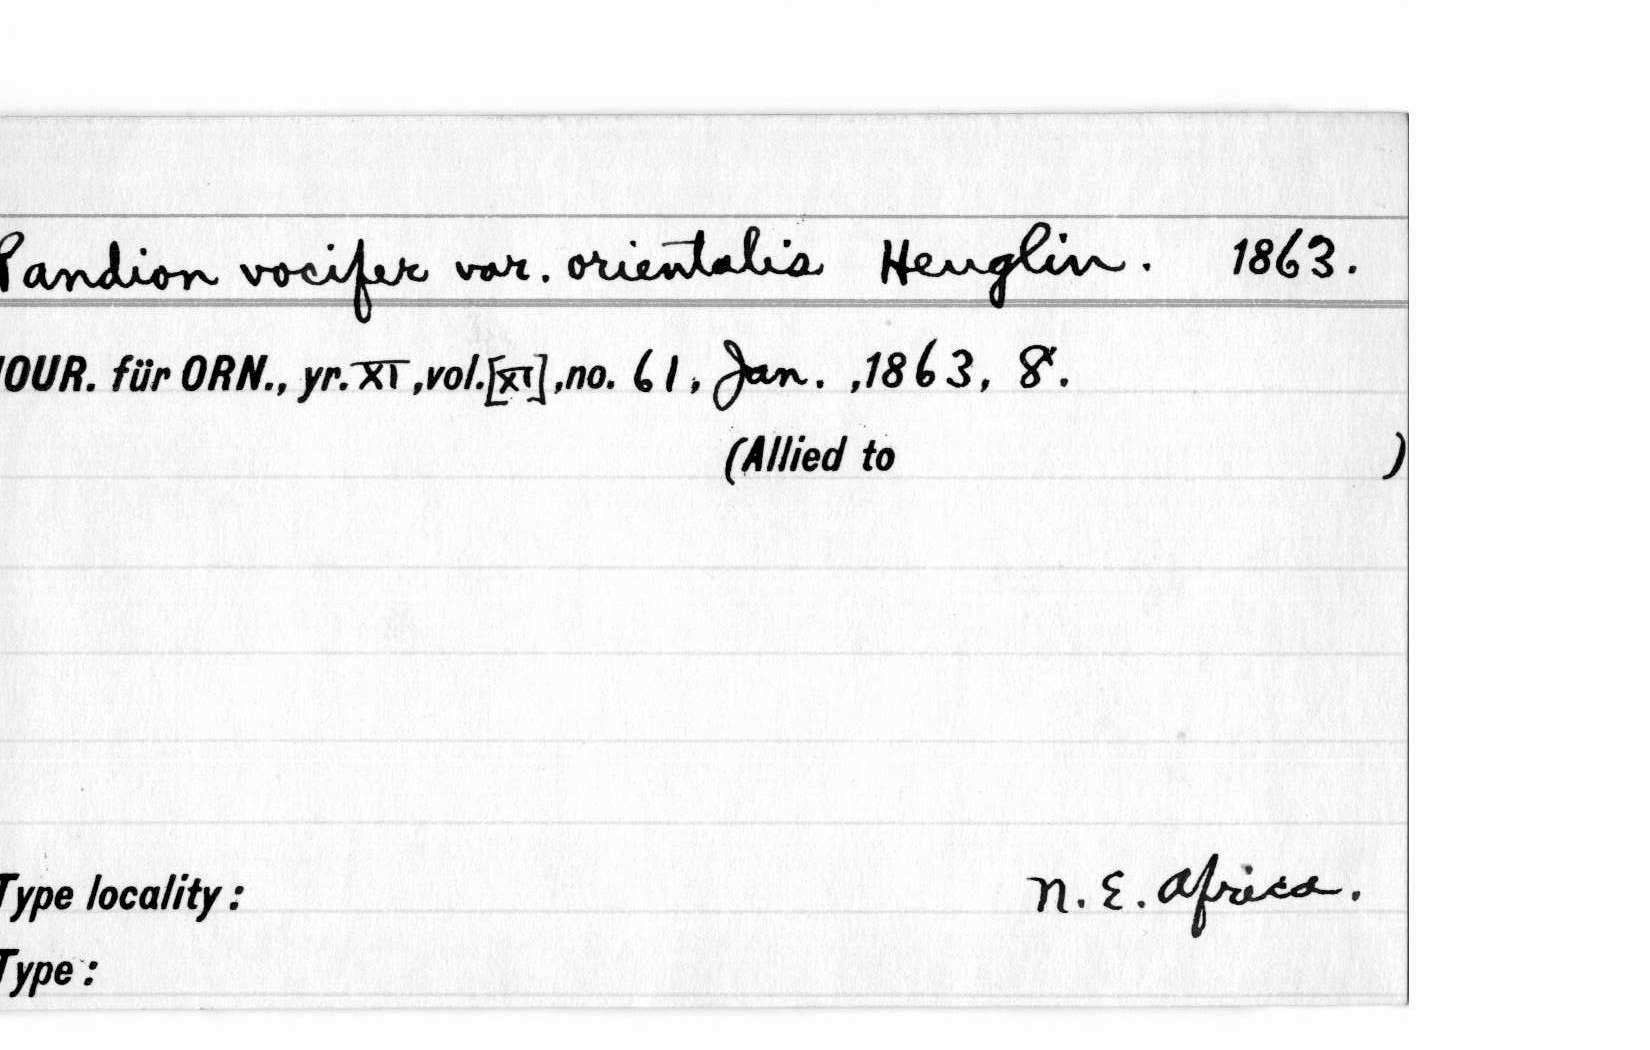 Pandion vocifer var. orientalis Heuglin. 1863.
JOUR. für ORN., yr. XI, vol. [XI], no. 61, Jan., 1863, 8.
(Allied to )
Type locality: N. E. Africa.
Type: